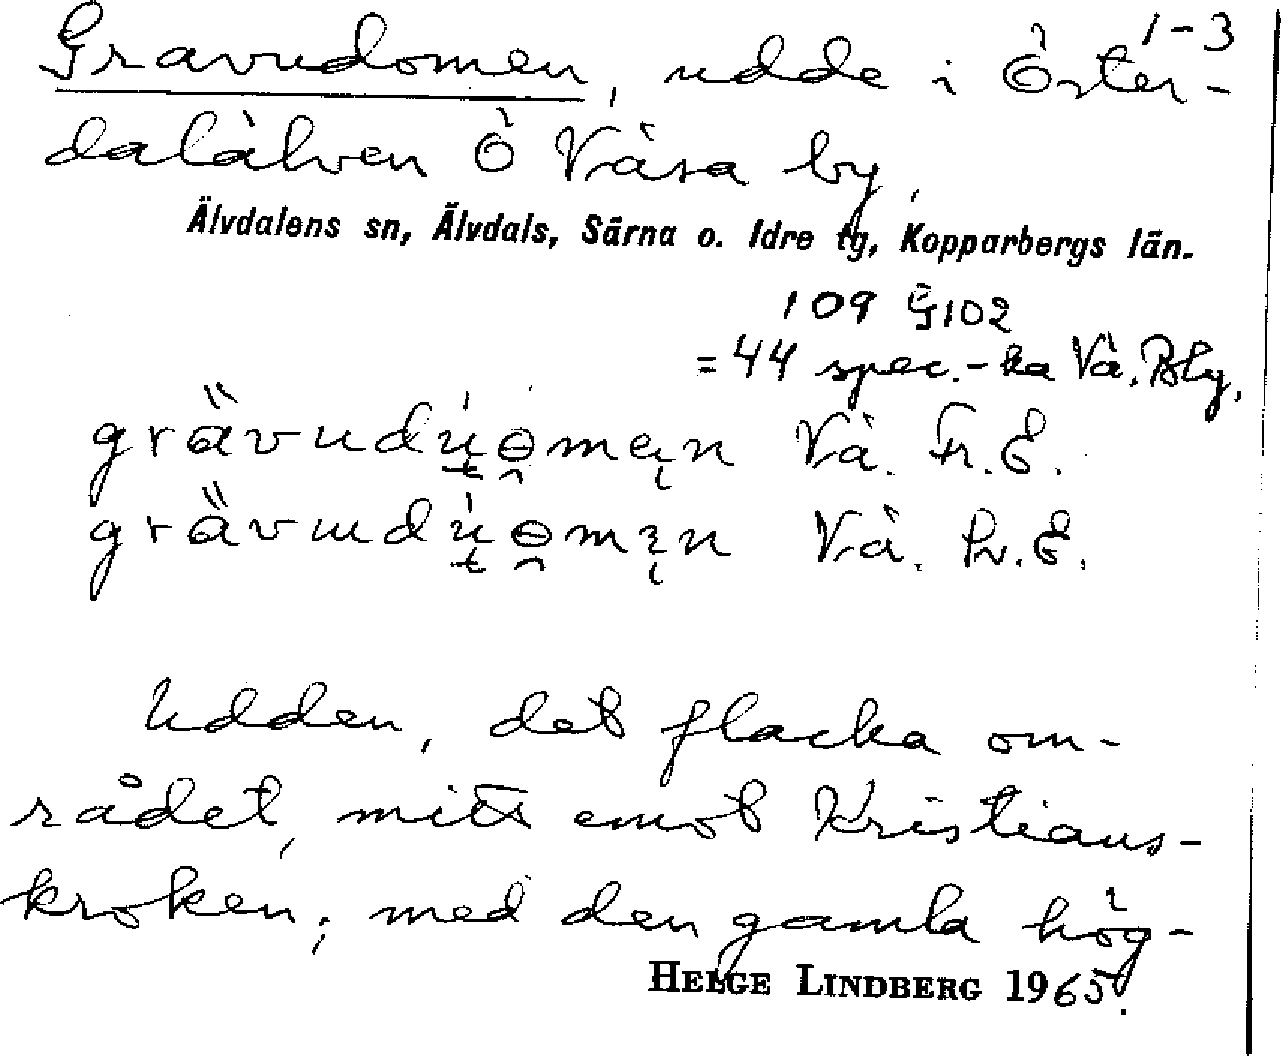 1-3
Gravudomen, udde i Öster-
dalälven Ö Väsa by,
Älvdalens sn, Älvdals, Särna o. Idre tg, Kopparbergs län.
109 G102
= 44 spec.-ka Vä. Bly.
Vä. Fr. E.
Vä. Pr. E.
Udden, det flacka om-
rådet, mitt emot Kristians-
kroken; med den gamla hög-
HELGE LINDBERG 1965.